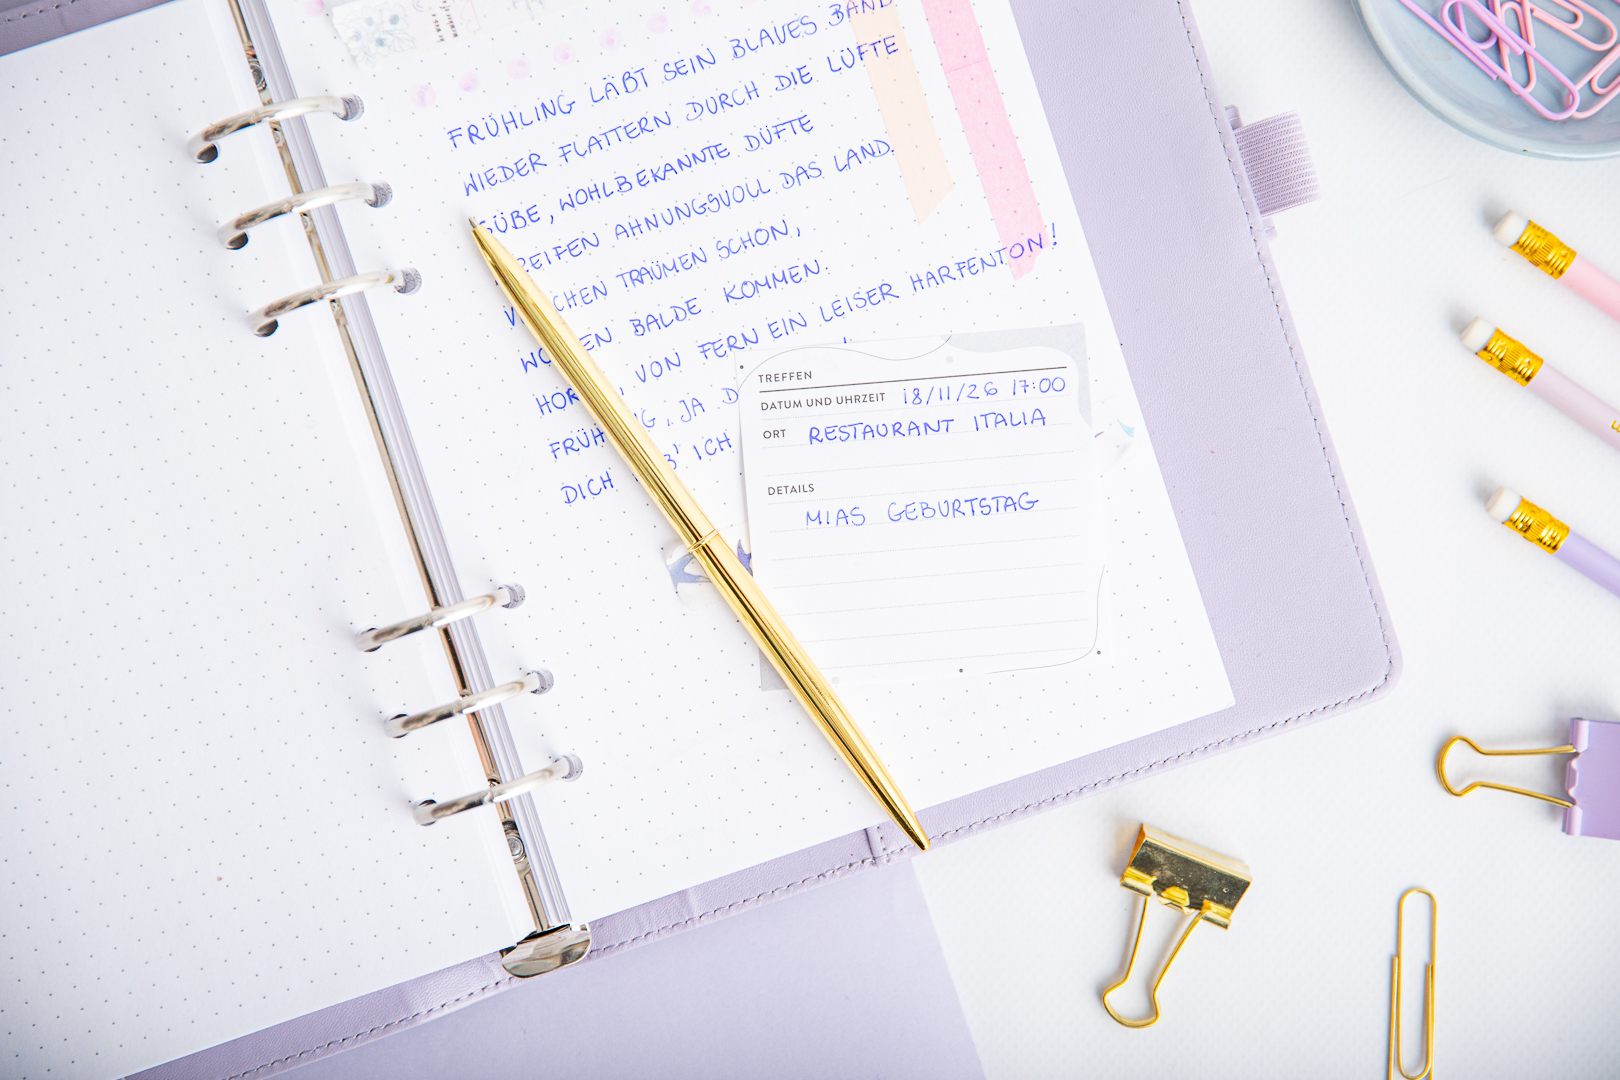 FRÜHLING LÄßT SEIN BLAUES BAND
WIEDER FLATTERN DURCH DIE LÜFTE
SÜßE, WOHLBEKANNTE DÜFTE
REIFEN AHNUNGSVOLL DAS LAND.
CHEN TRAÜMEN SCHON,
EN BALDE KOMMEN.
HOR , VON FERN EIN LEISER HARFENTON!
FRÜH G, JA D
DICH B' ICH
TREFFEN
DATUM UND UHRZEIT 18/11/26 17:00
ORT RESTAURANT ITALIA
DETAILS
MIAS GEBURTSTAG